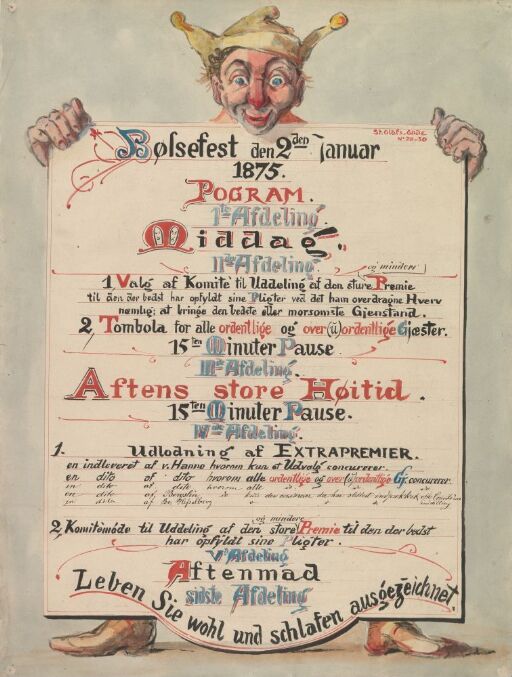 St. Olafs. Gade
No 28-30
Bølsefest den 2den Januar
1875.
POGRAM.
1ste Afdeling.
Middag.
IIden Afdeling.
og mindere
1 Valg af Komite til Uddeling af den store Premie
til den der bedst har opfyldt sine Pligter ved det ham overdragne Hverv
nemlig; at bringe den bedste eller morsomste Gjenstand.
2, Tombola for alle ordentlige og over(ü)ordentlige Gjæster.
15ten Minuter Pause
Afdeling.
Aftens store Høitid.
15ten Minuter Pause.
Afdeling.
1. Udlodning af EXTRAPREMIER.
en indleveret af v. Hanno hvorom kun et Udvalg concurrer.
en dito af dito hvorom alle ordentlige og over(ü)ordentlige Gj. concurrer.
en dito af dito hvorom alle
en dito af
en dito af
og mindere
2, Komitemöde til Uddeling af den store Premie til den der bedst
har opfyldt sine Pligter.
Afdeling
Aftenmad
sidste Afdeling
Leben Sie wohl und schlafen ausgezeichnet.